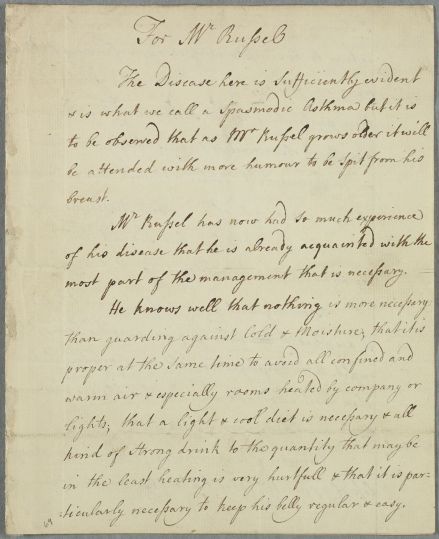 For Mr Russel
The Disease here is sufficiently evident
& is what we call a Spasmodic Asthma but it is
to be observed that as Mr Russel grows older it will
be attended with more humour to be spit from his
breast.
Mr Russel has now had so much experience
of his disease that he is already acquainted with the
most part of the management that is necessary.
He knows well that nothing is more necessary
than guarding against Cold & Moisture, that it is
proper at the same time to avoid all confined and
warm air & especially rooms heated by company or
lights; that a light & cool diet is necessary & all
kind of strong drink to the quantity that may be
in the least heating is very hurtfull & that it is par=
=ticularly necessary to keep his belly regular & easy.
64